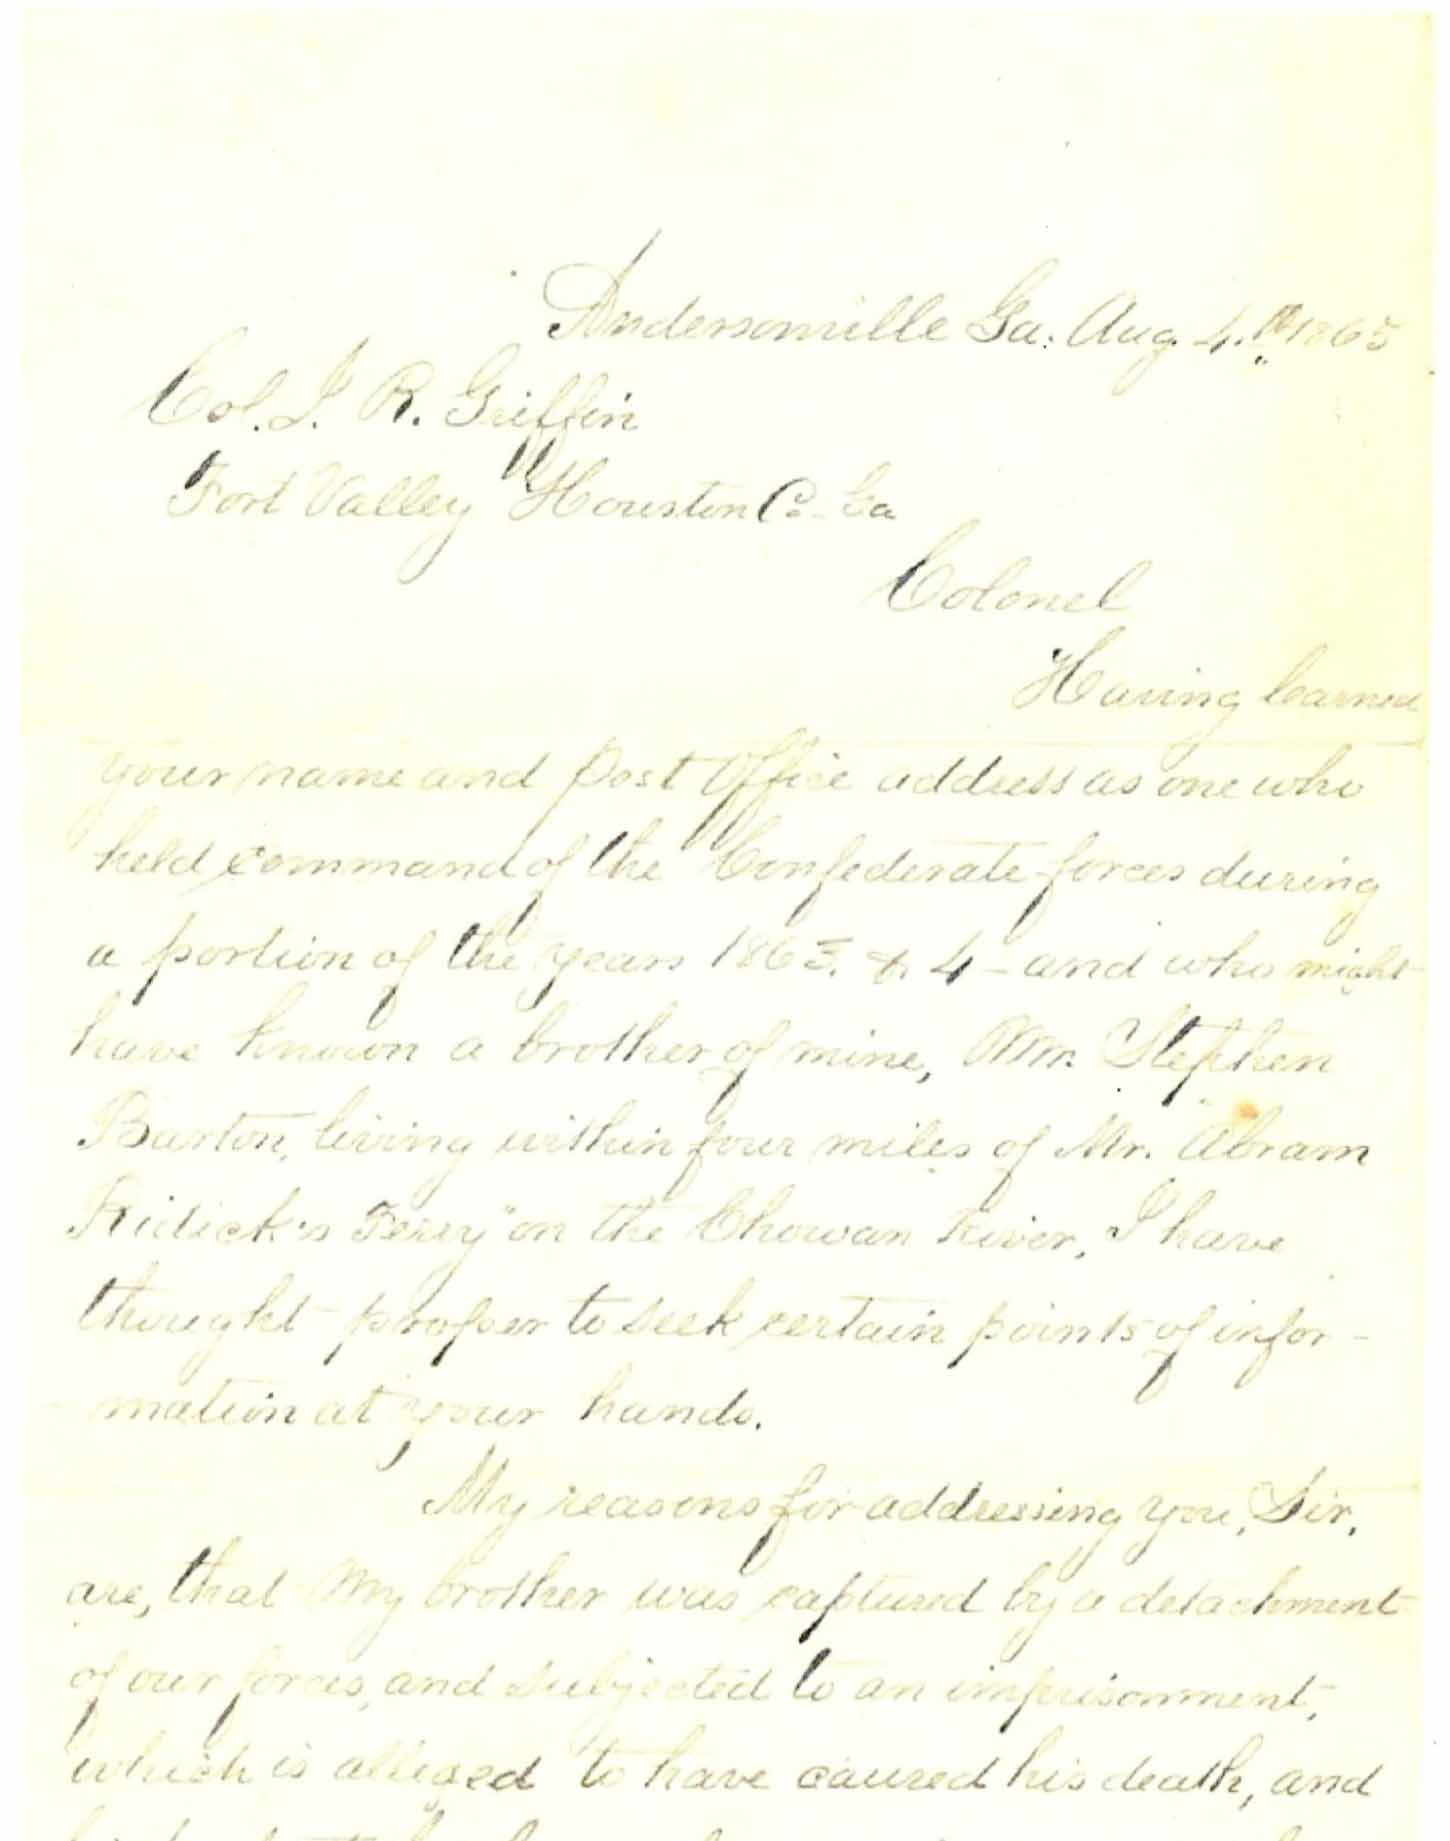 Andersonville Ga. Aug. 4.th 1865
Col. J. R. Griffin
Fort Valley Houston Co. Ga
Colonel
Having learned
your name and Post Office address as one who
held command of the Confederate forces during
a portion of the years 1863. & 4 - and who might
have known a brother of mine, Mr. Stephen
Barton, living within four miles of Mr. Abram
Ridick's Ferry" on the Chowan River, I have
thought proper to seek certain points of infor-
mation at your hands.
My reasons for addressing you, Sir,
are, that My brother was captured by a detachment
of our forces, and subjected to an imprisonment,
which is alleged to have caused his death, and